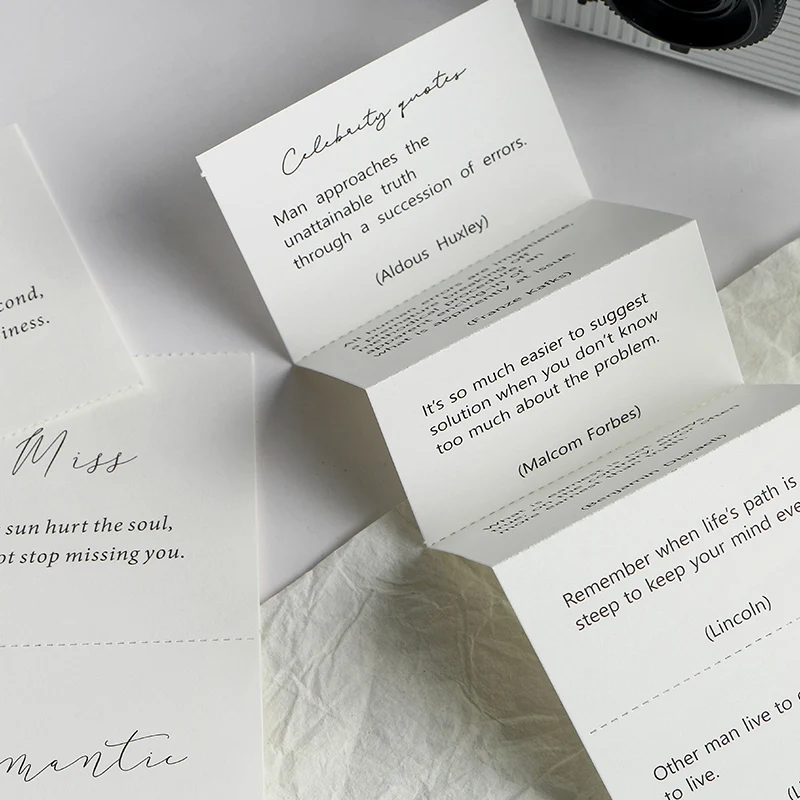 Celebrity quotes
Man approaches the
unattainable truth
through a succession of errors.
(Aldous Huxley)
all human errors are impatience,
what is apparently at issue.
(Franze Kafks)
It's so much easier to suggest
solution when you don't know
too much about the problem.
(Malcom Forbes)
Remember when life's path is
steep to keep your mind
(Lincoln)
Other man live to
to live.
iness.
Miss
sun hurt the soul,
stop missing you.